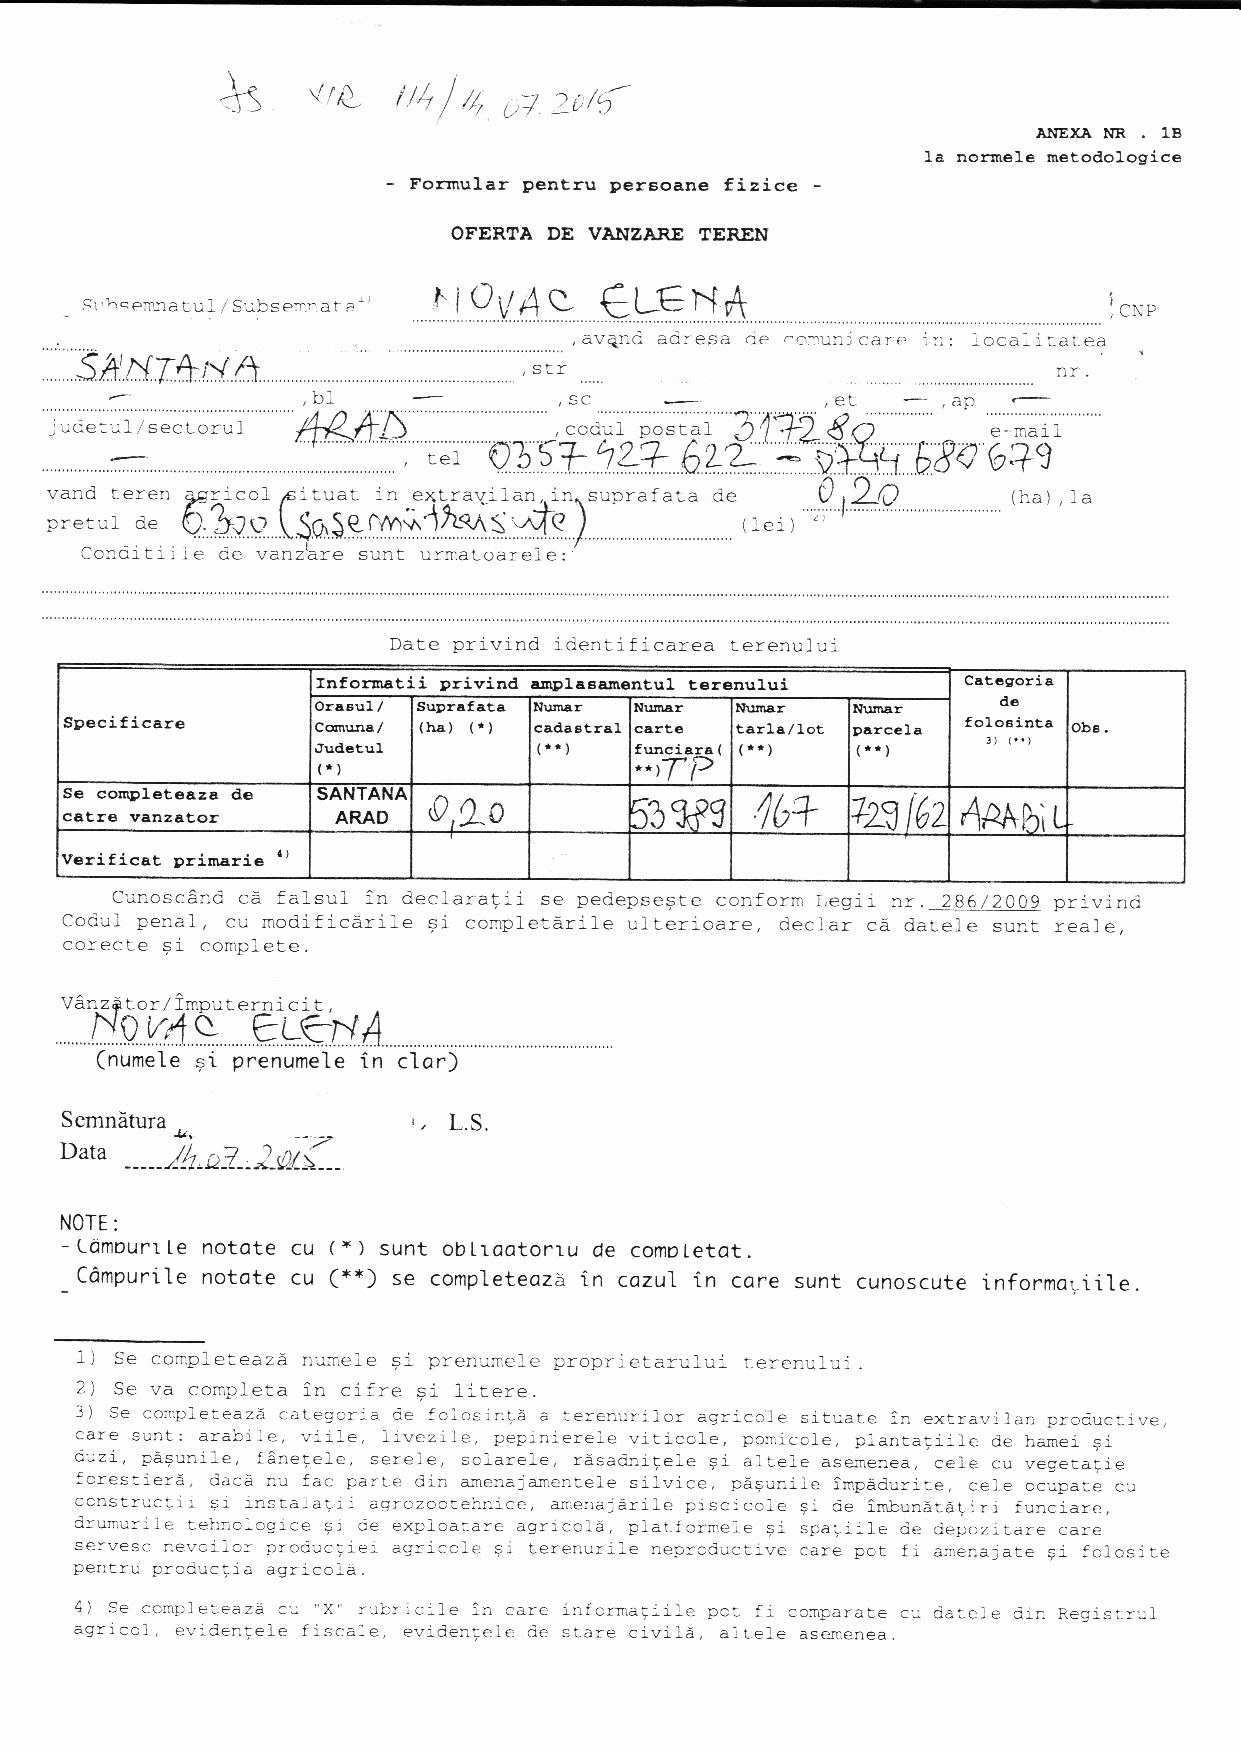 VIR 114/14.07.2015
ANEXA NR . 1B
la normele metodologice
- Formular pentru persoane fizice -
OFERTA DE VANZARE TEREN
Subsemnatul/Subsemnata 1) NOVAC ELENA CNP
,avand adresa de comunicare in: localitatea
SANTANA ,str nr.
— ,bl — ,sc — ,et — ,ap —
judetul/sectorul ARAD ,codul postal 317280 e-mail
— , tel 0357-427-622 - 0744 680679
vand teren agricol situat in extravilan,in suprafata de 0,20 (ha),la
pretul de 6.300 (sasemiitreisute) (lei) 2)
Conditiile de vanzare sunt urmatoarele:
Date privind identificarea terenului
Informatii privind amplasamentul terenului
Specificare
Orasul/ Comuna/ Judetul (*)
Suprafata (ha) (*)
Numar cadastral (**)
Numar carte funciara( **) TP
Numar tarla/lot (**)
Numar parcela (**)
Categoria de folosinta 3) (**)
Obs.
Se completeaza de catre vanzator SANTANA ARAD 0,20 53989 167 729/62 ARABIL
Verificat primarie 4)
Cunoscând că falsul în declarații se pedepsește conform Legii nr. 286/2009 privind
Codul penal, cu modificările și completările ulterioare, declar că datele sunt reale,
corecte și complete.
Vânzător/Împuternicit,
NOVAC ELENA
(numele și prenumele în clar)
Semnătura L.S.
Data 14.07.2015
NOTE:
- Câmpurile notate cu (*) sunt obligatoriu de completat.
- Câmpurile notate cu (**) se completează în cazul în care sunt cunoscute informațiile.
1) Se completează numele și prenumele proprietarului terenului.
2) Se va completa în cifre și litere.
3) Se completează categoria de folosință a terenurilor agricole situate în extravilan productive,
care sunt: arabile, viile, livezile, pepinierele viticole, pomicole, plantațiile de hamei și
duzi, pășunile, fânețele, serele, solarele, răsadnițele și altele asemenea, cele cu vegetație
forestieră, dacă nu fac parte din amenajamentele silvice, pășunile împădurite, cele ocupate cu
construcții și instalații agrozootehnice, amenajările piscicole și de îmbunătățiri funciare,
drumurile tehnologice și de exploatare agricolă, platformele și spațiile de depozitare care
servesc nevoilor producției agricole și terenurile neproductive care pot fi amenajate și folosite
pentru producția agricolă.
4) Se completează cu "X" rubricile în care informațiile pot fi comparate cu datele din Registrul
agricol, evidențele fiscale, evidențele de stare civilă, altele asemenea.